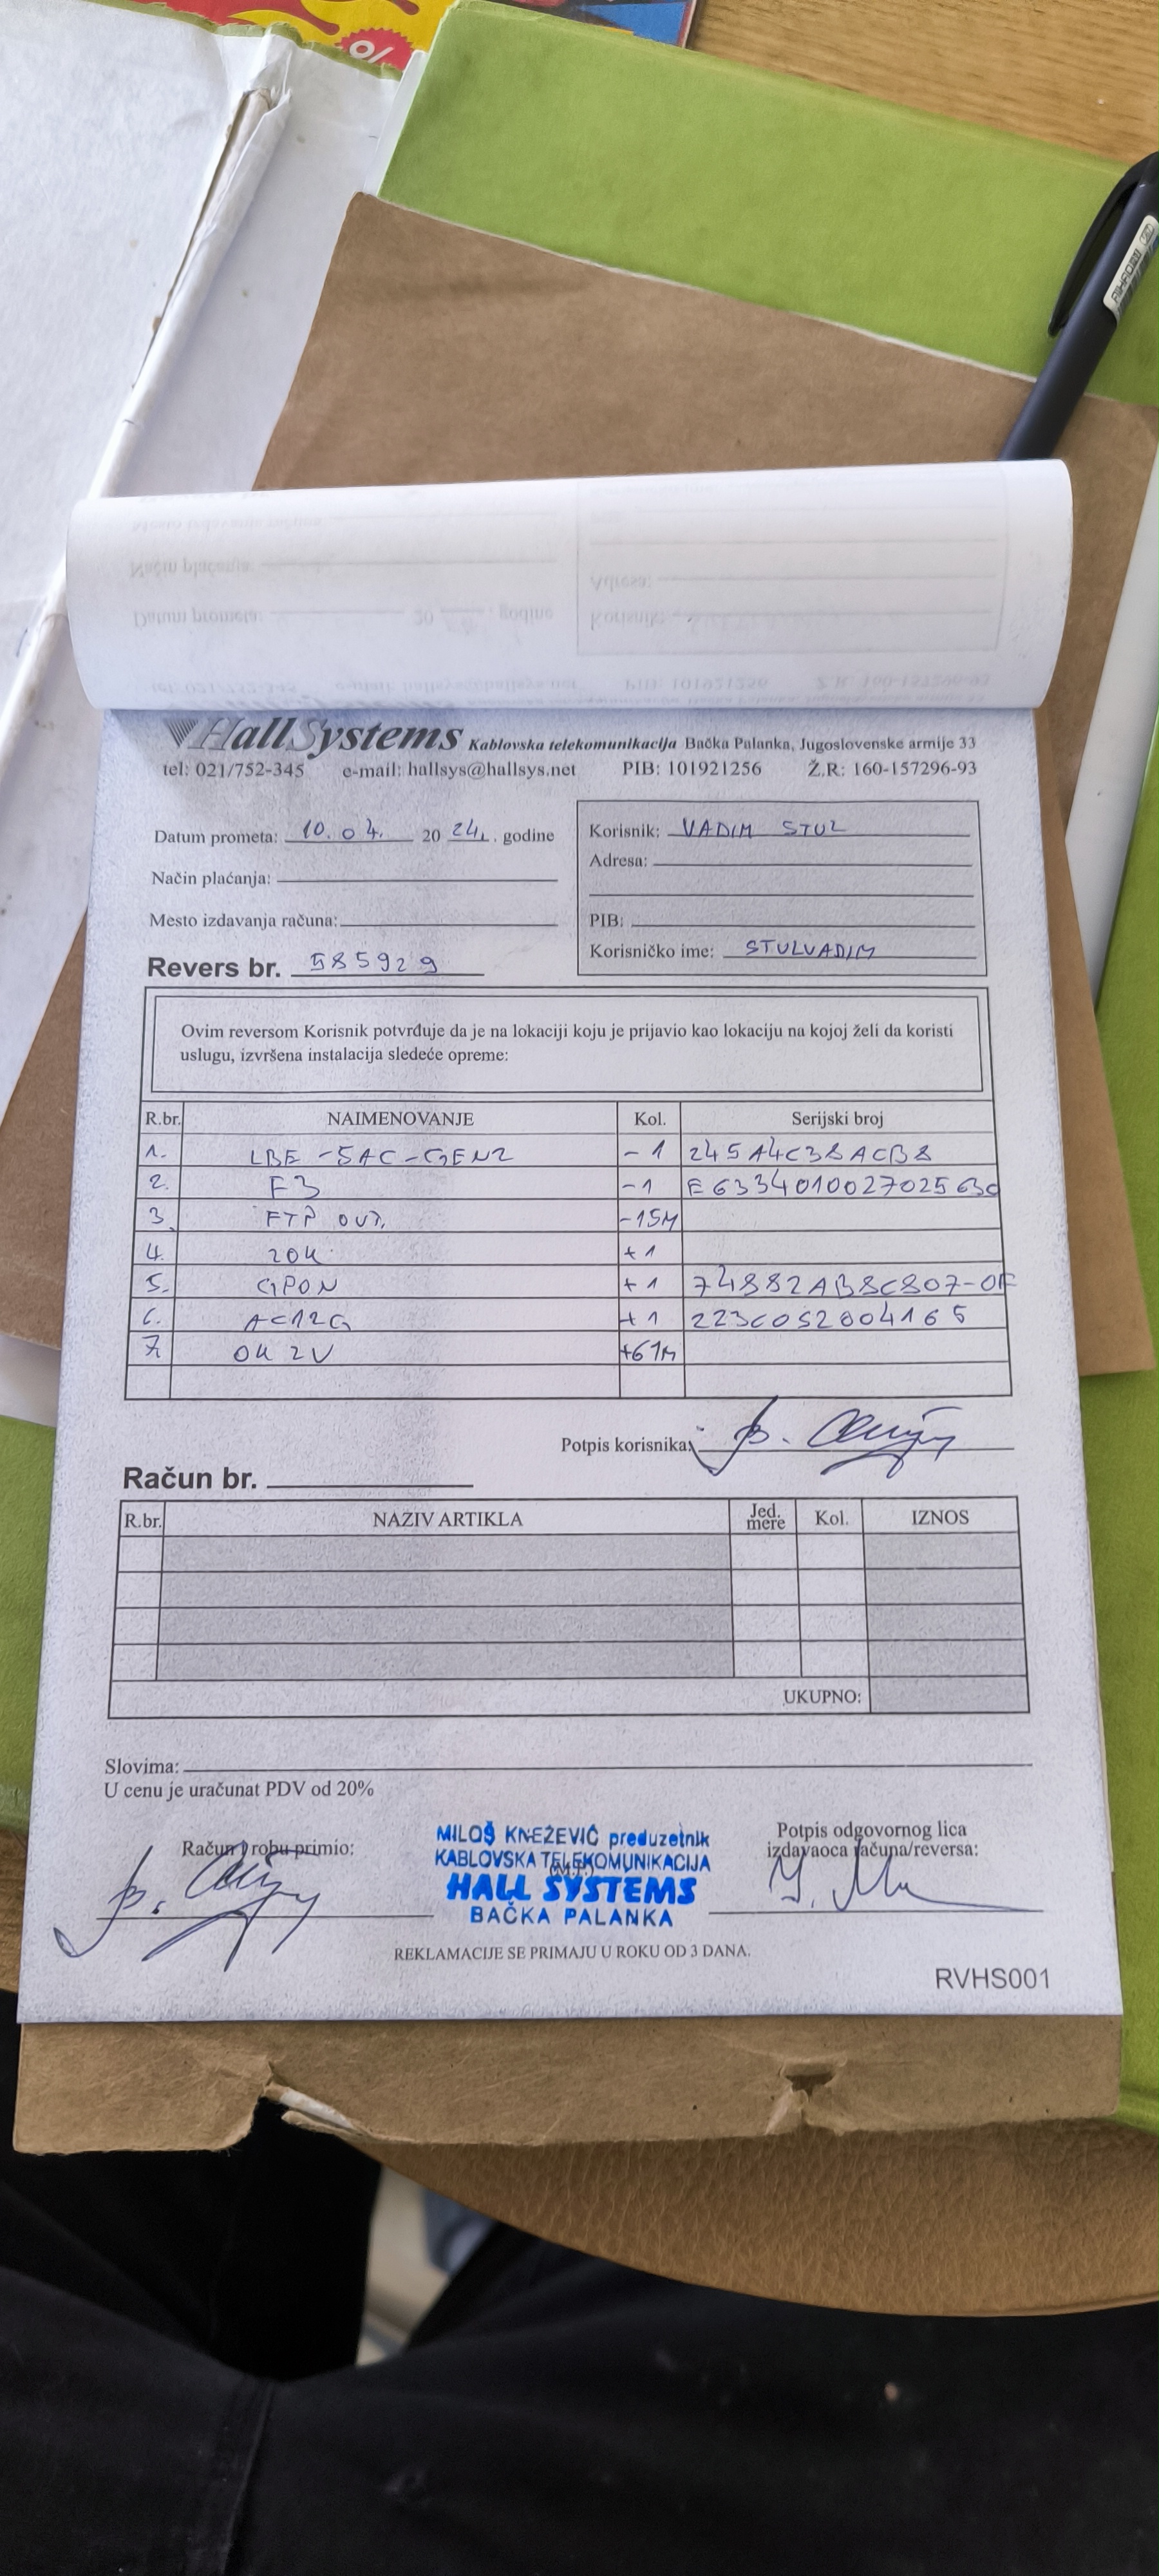 %
HallSystems Kablovska telekomunikacija Bačka Palanka, Jugoslovenske armije 33
tel: 021/752-345 e-mail: hallsys@hallsys.net PIB: 101921256 Ž.R: 160-157296-93
Datum prometa: 10.04. 2024. godine
Način plaćanja:
Mesto izdavanja računa:
Revers br. 585929
Korisnik: VADIM STUL
Adresa:
PIB:
Korisničko ime: STULVADIM
Ovim reversom Korisnik potvrđuje da je na lokaciji koju je prijavio kao lokaciju na kojoj želi da koristi
uslugu, izvršena instalacija sledeće opreme:
R.br. NAIMENOVANJE Kol. Serijski broj
1. LBE-5AC-GEN2 -1 245A4C38ACB8
2. F3 -1 E6334010027025630
3. FTP OUT. -15M
4. ZOK +1
5. GPON +1 74882AB8C807-0F
6. AC12G +1 223C052004165
7. OK 2V +61M
Potpis korisnika:
Račun br.
R.br. NAZIV ARTIKLA Jed. mere Kol. IZNOS
UKUPNO:
Slovima:
U cenu je uračunat PDV od 20%
Račun i robu primio:
MILOŠ KNEŽEVIĆ preduzetnik
KABLOVSKA TELEKOMUNIKACIJA
(M.P.)
HALL SYSTEMS
BAČKA PALANKA
Potpis odgovornog lica
izdavaoca računa/reversa:
REKLAMACIJE SE PRIMAJU U ROKU OD 3 DANA.
RVHS001